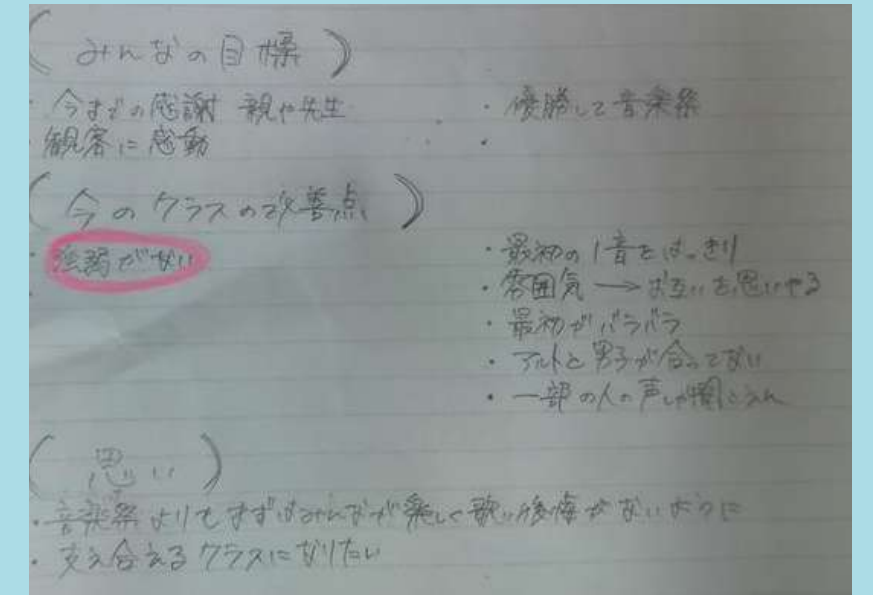 (みんなの目標)
・今までの感謝 親や先生
・観客に感動
・優勝して音楽祭
・
(今のクラスの改善点)
・強弱がない
・
・最初の1音をはっきり
・雰囲気→お互いを思いやる
・最初がバラバラ
・アルトと男子が合ってない
・一部の人の声しか聞こえん
(思い)
・音楽祭よりもまずはみんなが楽しく歌い後悔がないように
・支え合えるクラスになりたい